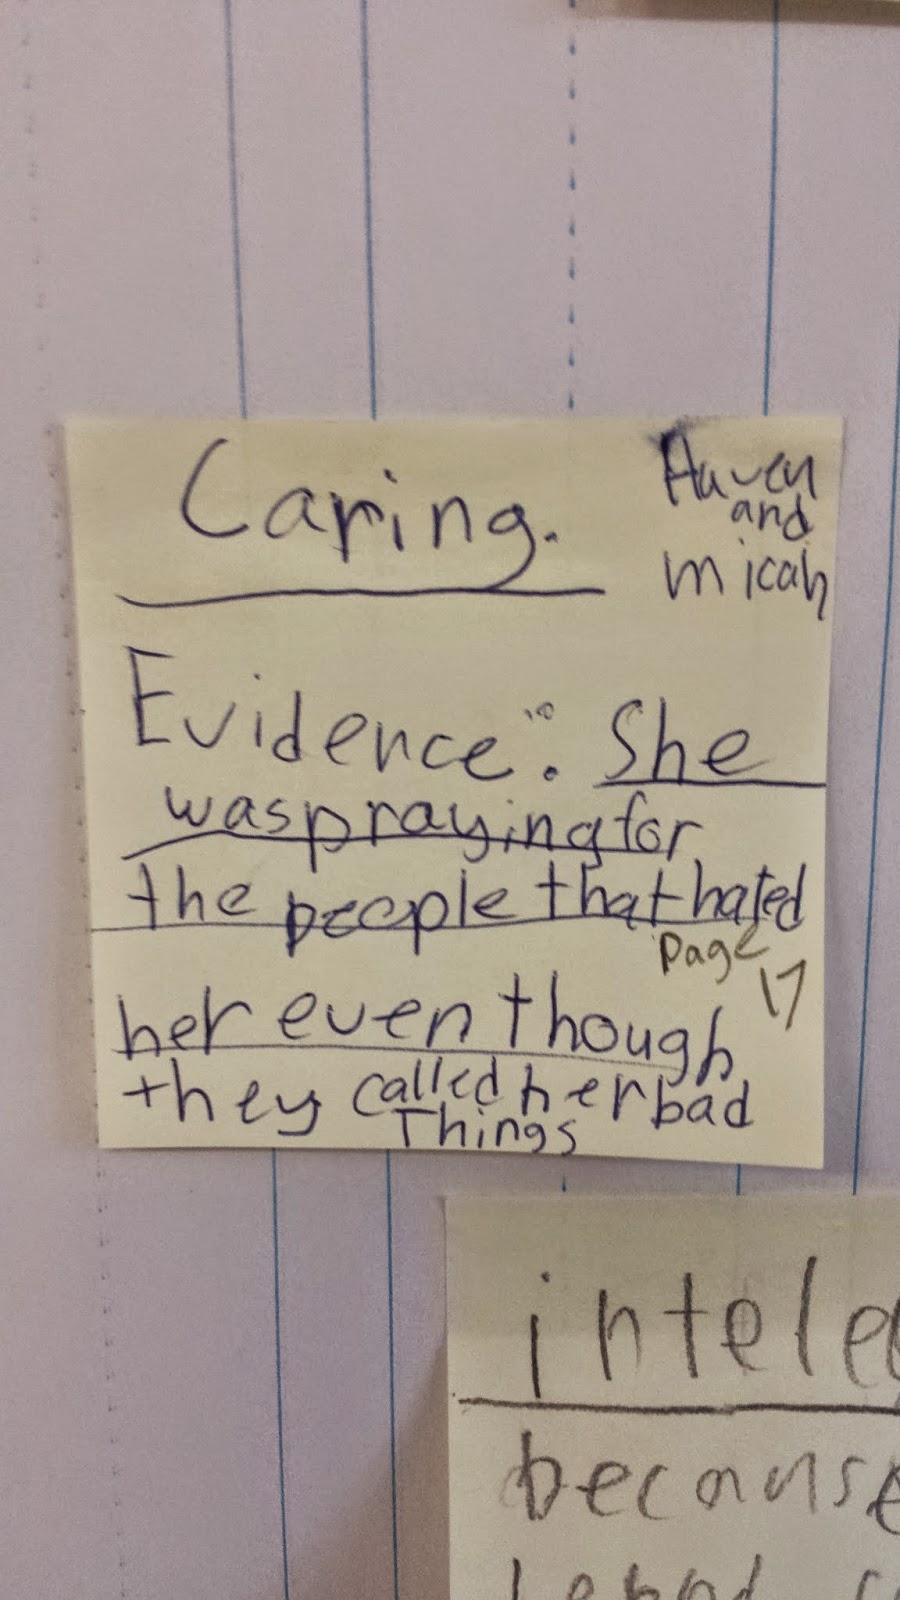 Caring.
Haven
and
micah
Evidence: She
was praying for
the people that hated
page 17
her even though
they called her bad
Things
inteleg
because